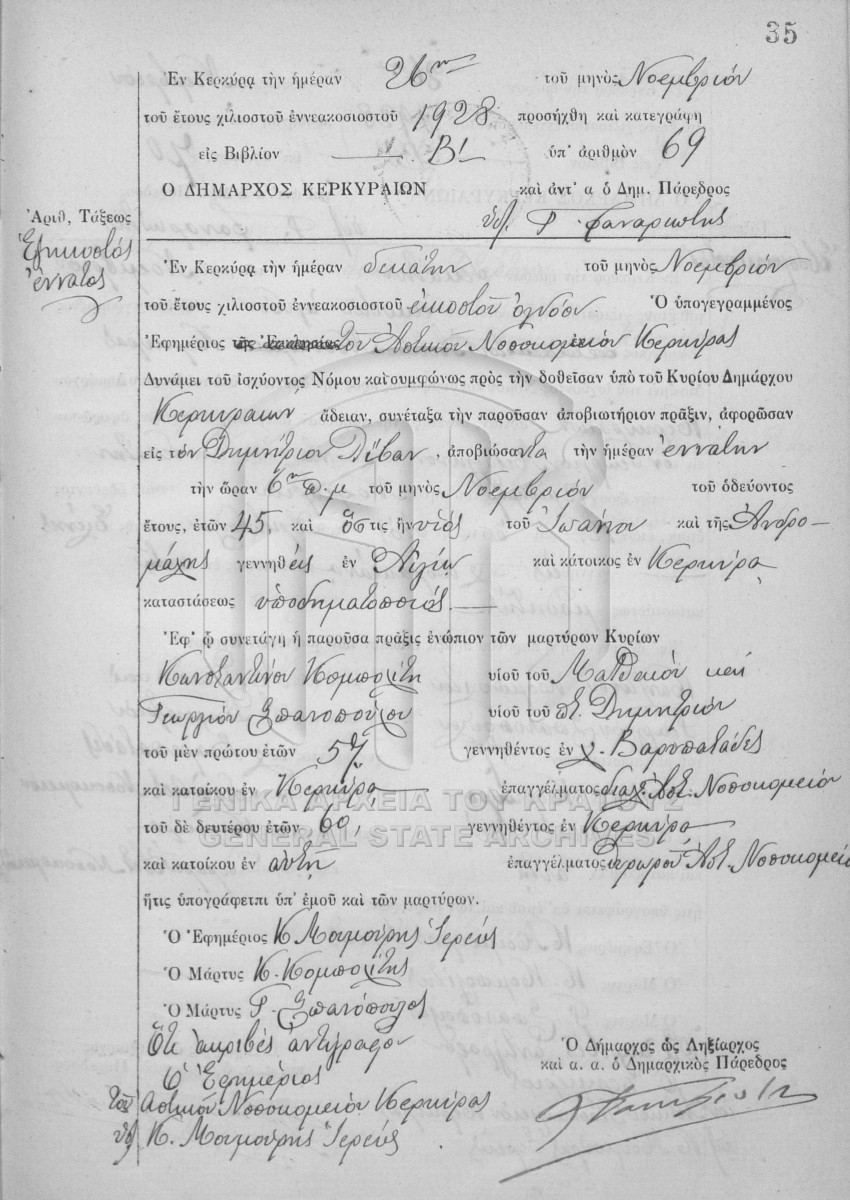 35
Ἐν Κερκύρᾳ τὴν ἡμέραν 26ην τοῦ μηνὸς Νοεμβρίου
τοῦ ἔτους χιλιοστοῦ ἐννεακοσιοστοῦ 1928 προσήχθη καὶ κατεγράφη
εἰς Βιβλίον Β' ὑπ' ἀριθμὸν 69
Ο ΔΗΜΑΡΧΟΣ ΚΕΡΚΥΡΑΙΩΝ καὶ ἀντ' α ὁ Δημ. Πάρεδρος
Γ. Φαναριώτης
Ἀριθ, Τάξεως
Ἑξηκοστός
ἔννατος
Ἐν Κερκύρᾳ τὴν ἡμέραν δεκάτην τοῦ μηνὸς Νοεμβρίου
τοῦ ἔτους χιλιοστοῦ ἐννεακοσιοστοῦ εἰκοστοῦ ὀγδόου Ὁ ὑπογεγραμμένος
Ἐφημέριος τῆς Ἐκκλησίας τοῦ Ἀστικοῦ Νοσοκομείου Κερκύρας
Δυνάμει τοῦ ἰσχύοντος Νόμου καὶ συμφώνως πρὸς τὴν δοθεῖσαν ὑπὸ τοῦ Κυρίου Δημάρχου
Κερκυραίων ἄδειαν, συνέταξα τὴν παροῦσαν ἀποβιωτήριον πρᾶξιν, ἀφορῶσαν
εἰς τόν Δημήτριον , ἀποβιώσαντα τὴν ἡμέραν ἐννάτην
τὴν ὥραν 6ην π.μ τοῦ μηνὸς Νοεμβρίου τοῦ ὁδεύοντος
ἔτους, ἐτῶν 45, καὶ ὅστις ἦν υἱός τοῦ Ἰωάννου καὶ τῆς Ἀνδρο-
μάχης γεννηθείς ἐν Αἰγίῳ καὶ κάτοικος ἐν Κερκύρᾳ
καταστάσεως ὑποδηματοποιός
Ἐφ' ᾧ συνετάγη ἡ παροῦσα πρᾶξις ἐνώπιον τῶν μαρτύρων Κυρίων
Κωνσταντίνου Κομπολίτη υἱοῦ τοῦ Ματθαίου καί
Γεωργίου Σπανοπούλου υἱοῦ τοῦ Δημητρίου
τοῦ μὲν πρώτου ἐτῶν 57 γεννηθέντος ἐν χ. Βαρυπατάδες
καὶ κατοίκου ἐν Κερκύρᾳ ἐπαγγέλματος Ἀστ. Νοσοκομείου
τοῦ δὲ δευτέρου ἐτῶν 60, γεννηθέντος ἐν Κερκύρᾳ
καὶ κατοίκου ἐν αὐτῇ ἐπαγγέλματος θυρωροῦ Ἀστ. Νοσοκομείου
ἥτις ὑπογράφεται ὑπ' ἐμοῦ καὶ τῶν μαρτύρων.
Ὁ Ἐφημέριος Κ Μουμούρης Ἱερεύς
Ὁ Μάρτυς Κ. Κομπολίτης
Ὁ Μάρτυς Γ. Σπανόπουλος
Ὅτι ἀκριβές ἀντίγραφον
Ὁ Ἐφημέριος
τοῦ Ἀστικοῦ Νοσοκομείου Κερκύρας
Κ. Μουμούρης Ἱερεύς
Ὁ Δήμαρχος ὡς Ληξίαρχος
καὶ α. α. ὁ Δημαρχικὸς Πάρεδρος
ΓΕΝΙΚΑ ΑΡΧΕΙΑ ΤΟΥ ΚΡΑΤΟΥΣ
GENERAL STATE ARCHIVES